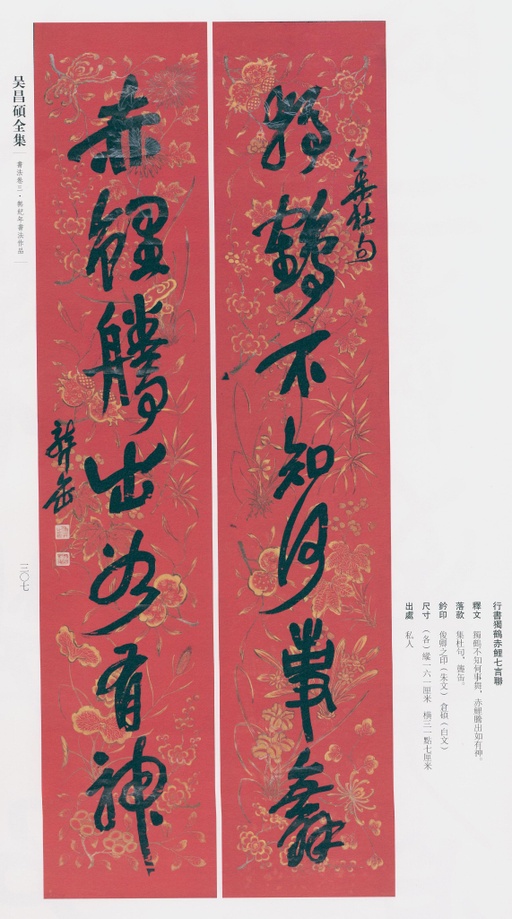 獨鶴不知何事舞
集杜句
赤鯉騰出如有神
聾缶
行書獨鶴赤鯉七言聯
釋文 獨鶴不知何事舞,赤鯉騰出如有神。
落款 集杜句。聾缶。
鈐印 俊卿之印(朱文) 倉碩(白文)
尺寸 (各)縱一六一厘米 橫三一點七厘米
出處 私人
吴昌碩全集
書法卷三·無紀年書法作品
三〇七